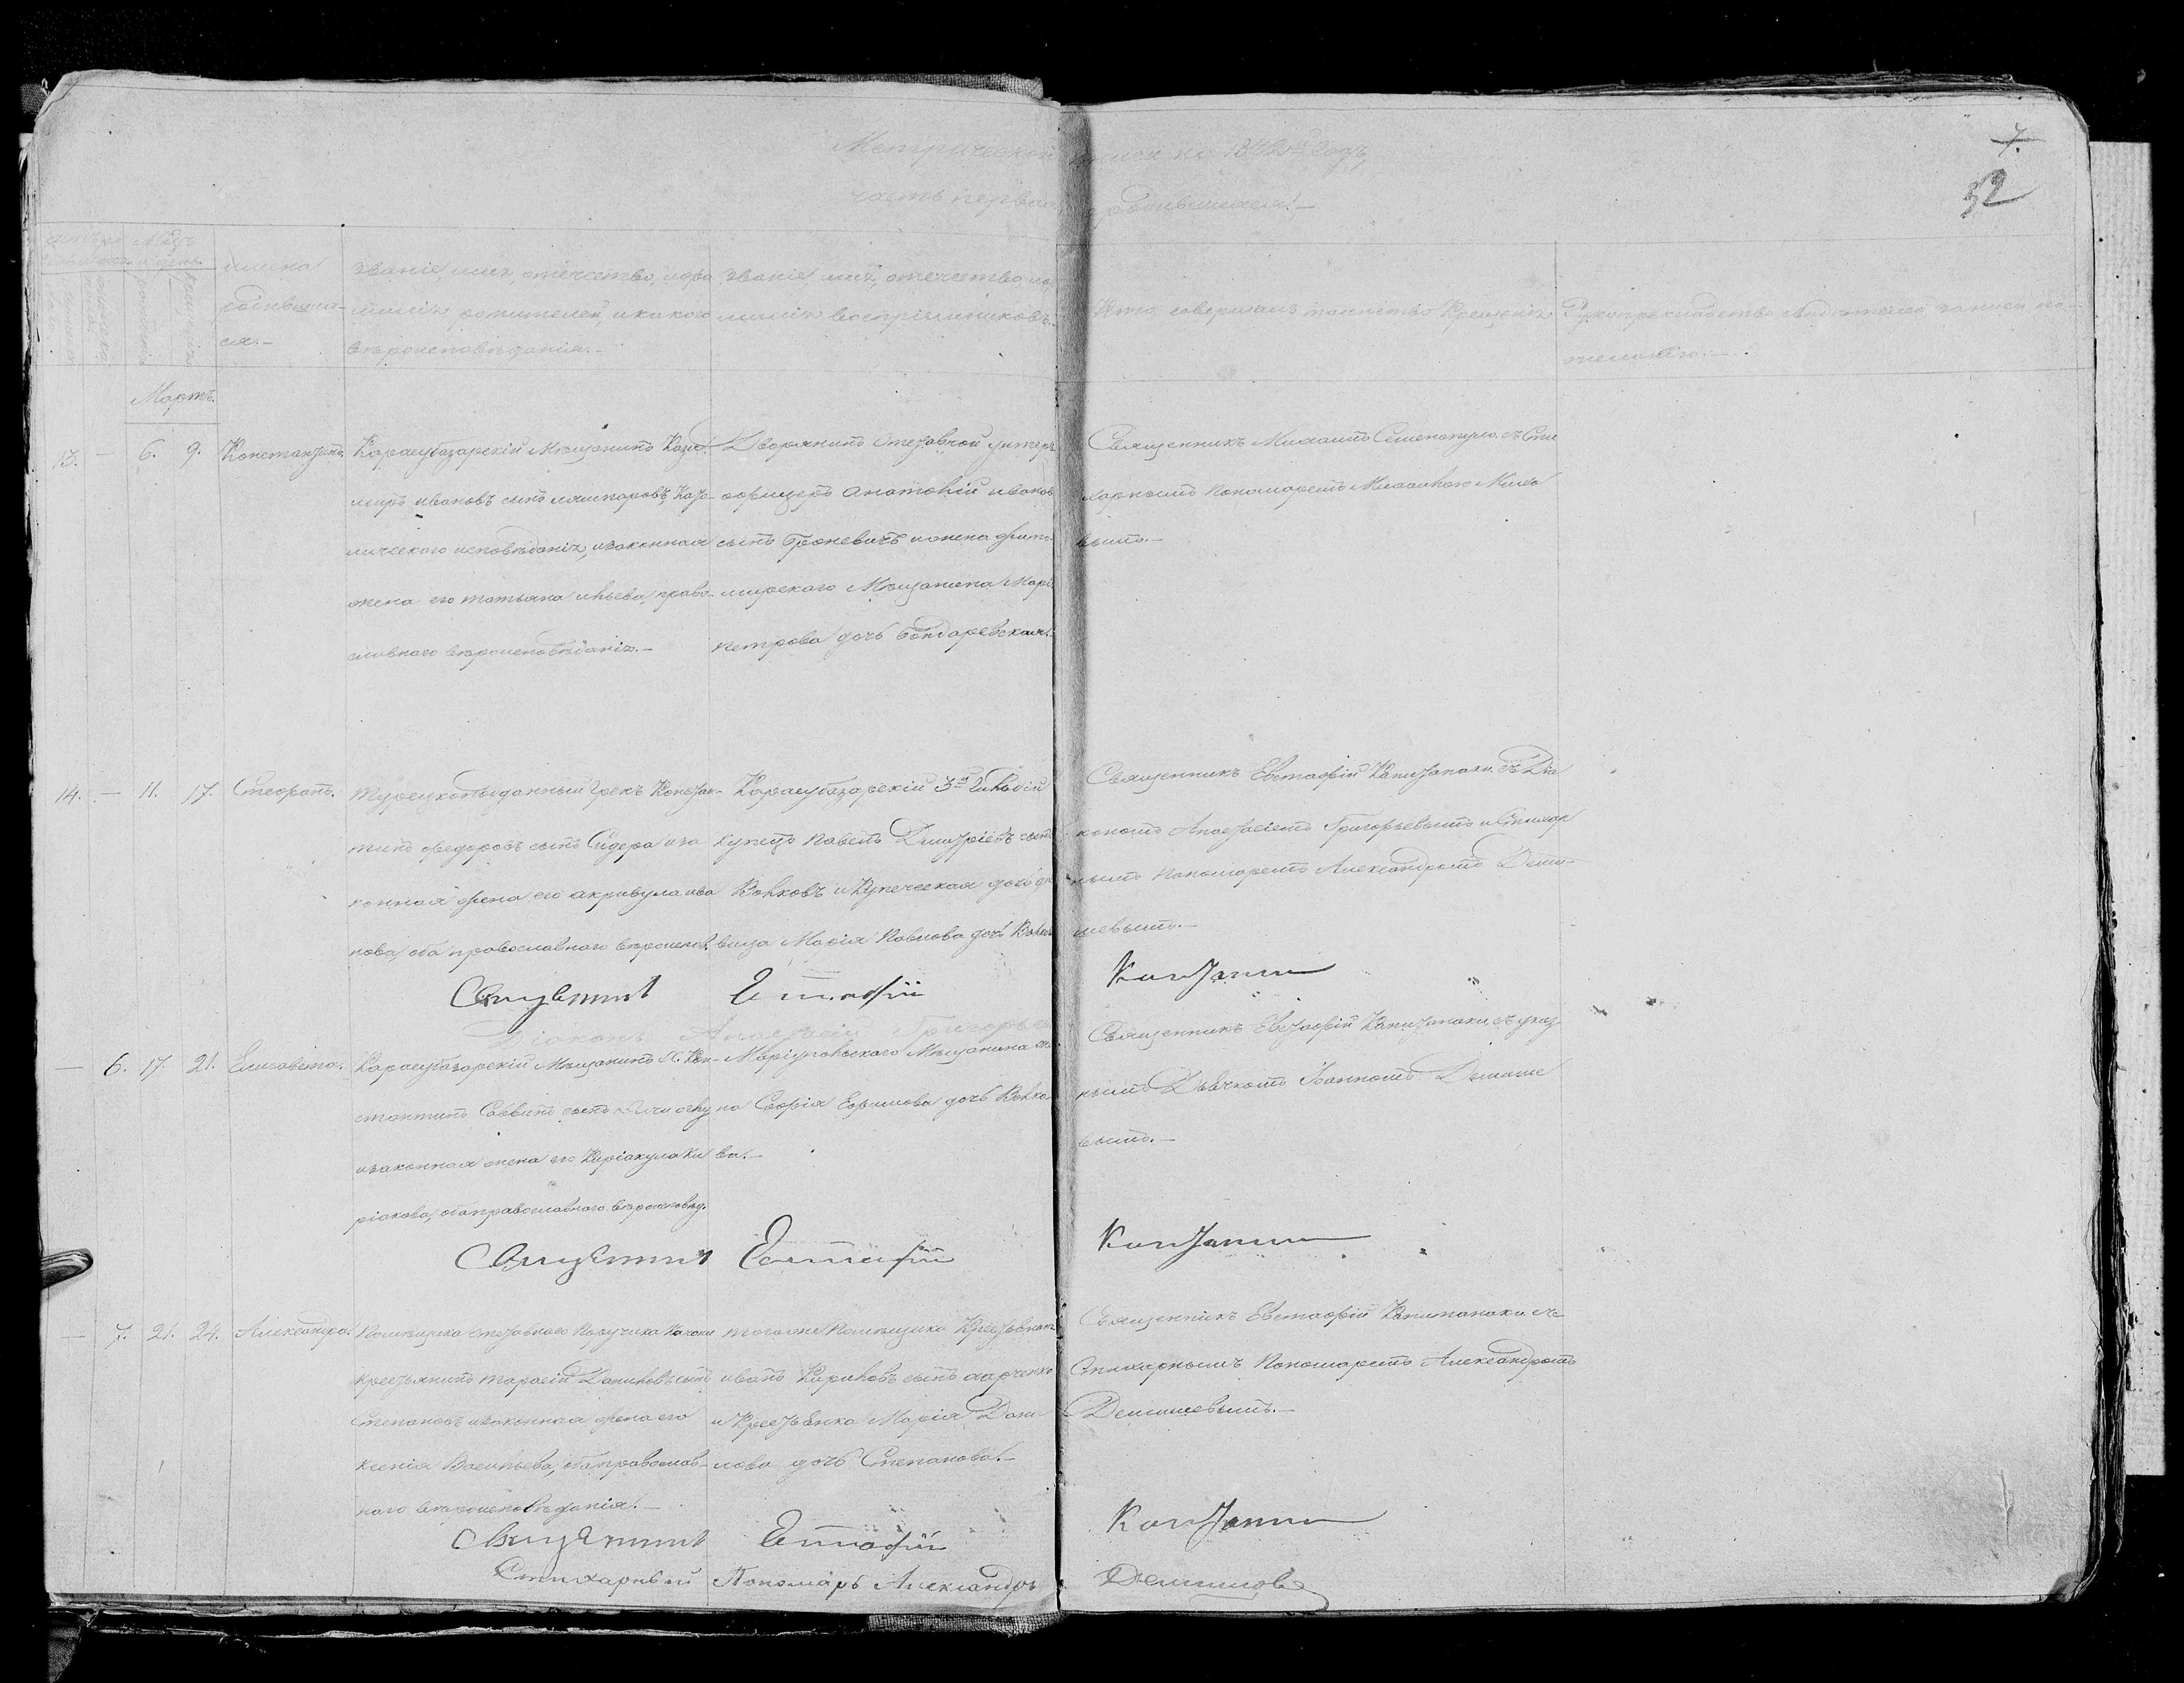 Метрической книги на 1842й годъ,
7.
32
часть первая, о родившихся.–
Мѣсяцъ и день.
имена родившихся.–
званіе, имя, отечество, и фамилія родителей, и какого вѣроисповѣданія.–
званіе, имя, отечество, и фамилія воспріемниковъ.–
Кто совершалъ таинство Крещенія
Рукоприкладство свидѣтелей записи по желанію.–
Мартъ.
13. – 6. 9. Константинъ.
Карасубазарскій Мѣщанинъ Кази-
миръ ивановъ сынъ
личекого исповѣданія, и законная
жена его татьяна ильева, право-
славного вѣроисповѣданія.–
Дворянинъ Отставной унтеръ
офицеръ Анатолій ивановъ
сынъ Броневичъ и жена жито-
мирского Мѣщанина Марія
петрова дочь Бондаревская.–
Священникъ Михаилъ съ Сти
харнымъ Пономаремъ
вымъ.–
14. – 11. 17. Стефанъ.
Турецкоподданный Грекъ Констан-
тинъ федоровъ сынъ Сидера и за
конная жена его акривула ива
нова, оба православного вѣроиспов.
Карасубазарскій 3й Гильдіи
Купецъ Павелъ Димитріевъ сынъ
Волковъ и Купеческая дочь дѣ
вица Марія Павлова дочь
Священникъ Евстафій Капитанаки съ Діа
кономъ Анастасіемъ Григорьевымъ и Стихар
нымъ Пономаремъ Александромъ Деми-
шевымъ.–
Священникъ Евстафій Капитанаки
Діаконъ Анастасій Григорьевъ
– 6. 17. 21. Елисавета.
Карасубазарскій Мѣщанинъ Кон-
стантинъ Саввинъ сынъ
и законная жена его Киріакула Ки
ріакова, оба православного вѣроисповѣд.
Маріупольского Мѣщанина же
на Софія Ефимова дочь Волко
ва.–
Священникъ Евстафій Капитанаки, съ указ
нымъ Дьячкомъ Іоанномъ
вымъ.–
Священникъ Евстафій Капитанаки
– 7. 21. 24. Александра.
Помѣщика Отставного Поручика
крестьянинъ тарасій Даниловъ сынъ
Степановъ и законная жена его
ксенія Васильева, оба православ-
ного вѣроисповѣданія.–
тогоже Помѣщика Крестьянинъ
иванъ Кириловъ сынъ
и Крестьянка Марія Дани-
лова дочь Степанова.–
Священникъ Евстафій Капитанаки съ
Стихарнымъ Пономаремъ Александромъ
Демишевымъ.–
Священникъ Евстафій Капитанаки
Стихарный Пономарь Александръ Демишовъ